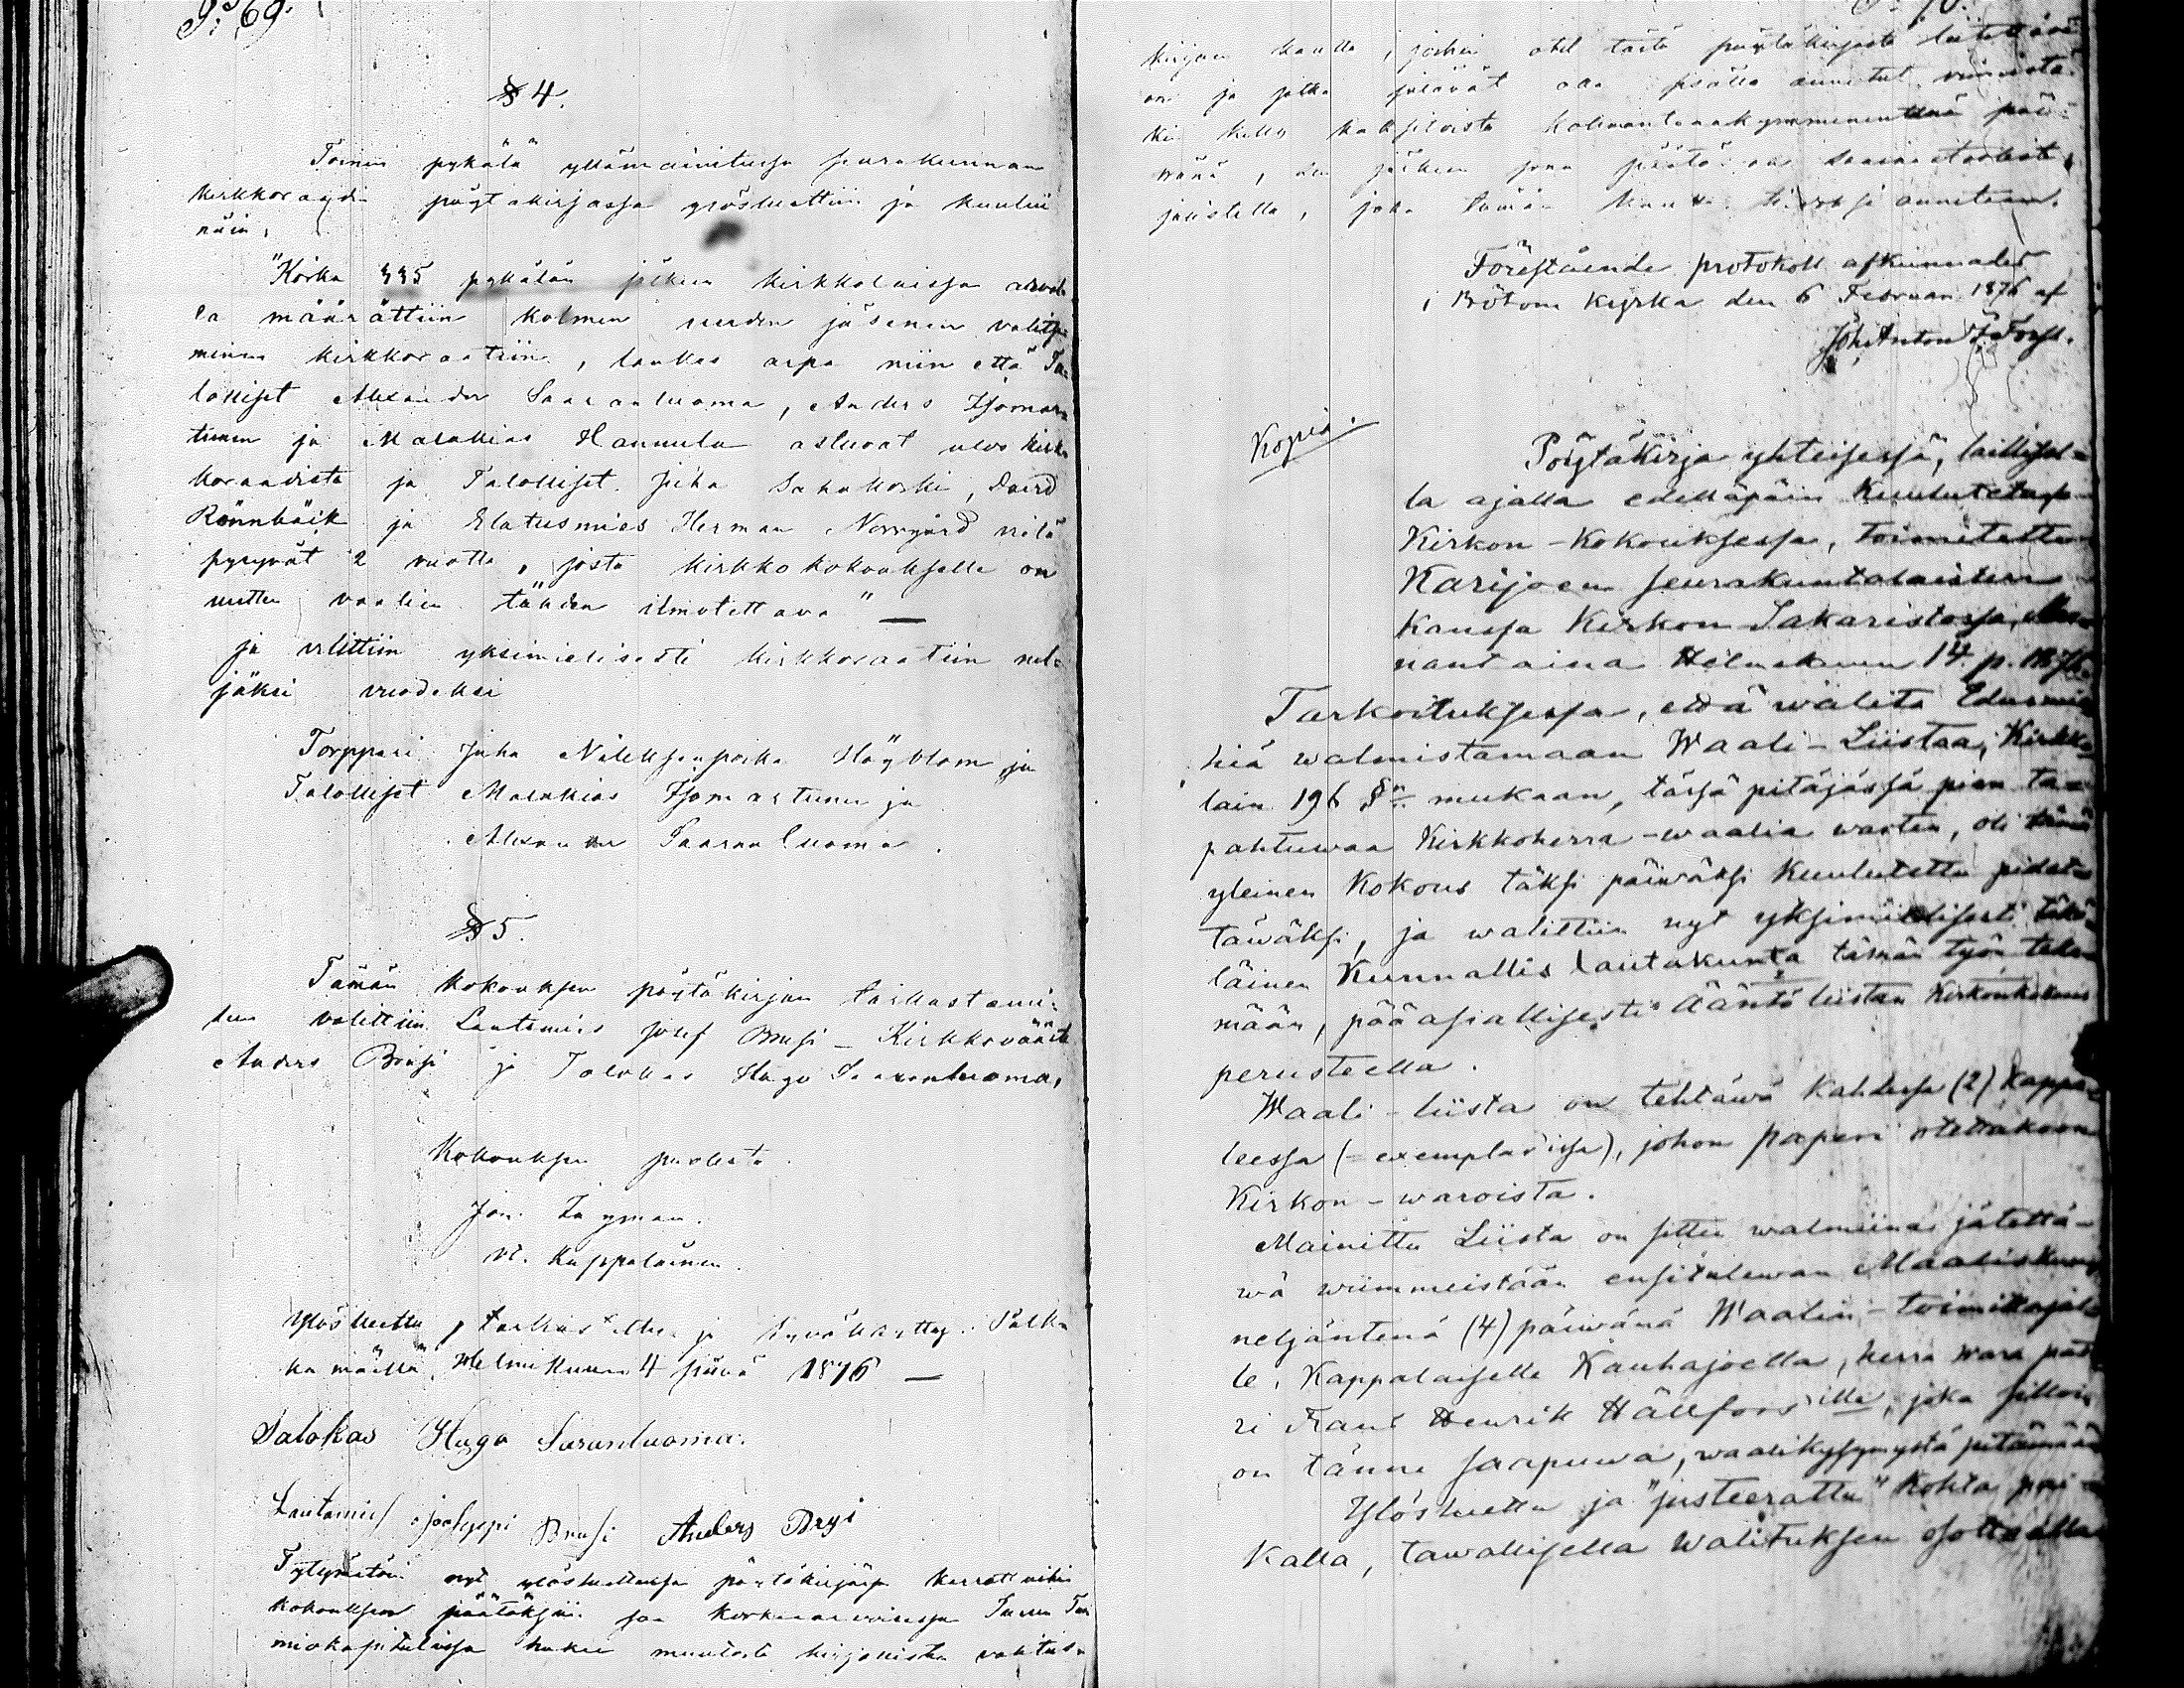 P: 69.
§ 4.
Toinen pykälä ylläm ainitussa seurakunnan
kirkkoraadin pöytäkirjassa ylösluettiin ja kuului
näin,
"Koska 335 pykälän jälkeen kirkkolaissa
la määrättiin kolmen uuden jäsenen valitse
minen kirkkoraatiin, laukes arpa niin että Ta
lolliset Alexander Saaranluoma, Anders Isomar
tunen ja Malakias Hannula astuvat ulos kirk
koraadista ja Talolliset Juha Sahakoski, David
Rönnbäck ja Elatusmies Herman Norrgård vielä
pysyvät 2 vuotta, josta kirkkokokoukselle on
uutten vaalien tähden ilmotettava" —
ja valittiin yksimielisesti kirkkoraatiin nel-
jäksi vuodeksi
Torppari Juha Niileksenpoika Höyblom ja
Talolliset Malakias Isomartunen ja
Alexander Saaranluoma.
§ 5.
Tämän kokouksen pöytäkirjan tarkastami-
seen valittiin Lautamies Josef Brusi – Kirkkoväärti
Anders Brusi ja Talokas Hugo Saaranluoma,
Kokouksen puolesta.
Joh.
Vt. Kappalainen.
Ylösluettu, tarkastettu ja hyväksytty.
ka mäellä, Helmikuun 4 päivä 1876 —
Talokas Hugo Saranluoma.
Lautamies Josehyppi Brusi Anders Brysi
Tytymätön nyt ylösluetussa pöytäkirjassa kerrottuihin
kokouksen päätöksiin saa korkeaarvoisessa Turun Tuo
miokapitulissa hakea muutosta kirjallisten valitus-
kirjan kautta, johon otet tästä pöytäkirjasta liitettävä
on ja jotka pitävät olla sisälle annetut viimeistä-
kin kello kaksitoista kolmantenakymmenentenä päi-
vänä, sen jälkeen jona päätös on
joistella, joka tämän kautta tiedoksi annetaan.
Förestående protokoll afkunnadt
i Bötom kyrka den 6 Februari 1876 af
Joh. Anton
Kopia.
Pöytäkirja yhteisessä, laillisel-
la ajalla edelläpäin kuulutetussa
Kirkon-Kokouksessa, toimitettu
Karijoen seurakuntalaisten
kanssa Kirkon Sakaristossa, Maa-
nantaina Helmikuun 14 p. 1876.
Tarkoituksessa, että walita Edusmie-
hiä walmistamaan Waali-Liistaa, Kirkko-
lain 196 §:n mukaan, tässä pitäjässä pian ta-
pahtuwaa Kirkkoherra-waalia warten, oli tämä
yleinen Kokous täksi päiwäksi kuulutettu pidet-
täwäksi, ja walittiin nyt yksimielisesti täkä-
läinen Kunnallis lautakunta tämän työn teke-
mään, pääasiallisesti ääntöliistan Kirkonkokous
perusteella.
Waali-liista on tehtäwä kahdessa (2) kappa-
leessa (-exemplarissa), johon paperi otettakoon
Kirkon-waroista.
Mainittu Liista on sitte walmiina jätettä-
wä wiimmeistään ensitulewan Maaliskuun
neljäntenä (4) päiwänä Waalin-toimittajal-
le, Kappalaiselle Kauhajoella, herra wara pas-
ri Frans Henrik Hällfors'ille, joka silloin
on tänne saapuwa, waalikysymystä pitämään
Ylösluettu ja "justeerattu" kohta pai-
kalla, tawallisella walituksen osottoalla